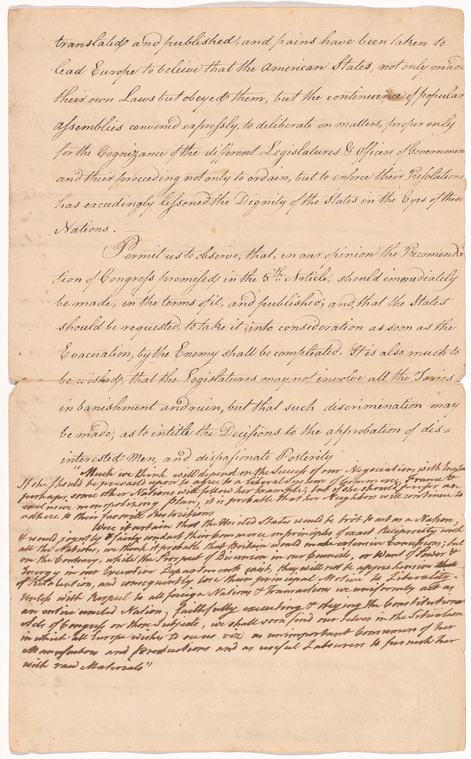 translated and published, and pains have been taken to
lead Europe to believe that the American States, not only made
their own Laws but obeyed them, but the continuance of popular
assemblies convened expressly, to deliberate on matters, proper only
for the Cognizance of the different Legislatures & Officers of Governmen
and their proceeding not only to ordain, but to enforce their Resolutions
has exceedingly lessened the Dignity of the States in the Eyes of these
Nations.
Permit us to observe, that, in our opinion the Recommenda
tion of Congress promised in the 5th. Article, should immediately
be made, in the terms of it, and published; and that the States
should be requested, to take it, into consideration as soon as the
Evacuation, by the Enemy shall be compleated. It is also much to
be wished, that the Legislatures may not involve all the Tories
in banishment and ruin, but that such discrimination may
be made, as to intitle the Decisions to the approbation of dis=
interested Men, and dispasionate Posterity
"Much we think will depend on the Success of our Negociations with England
If she should be prevailed upon to agree to a liberal System of Commerce, France &
perhaps, some other Nations will follow her Example; but if she should prefer an
exclusive monopolizing Plan, it is probable that her Neighbors will continue to
adhere to their favorite Restrictions
Were it certain that the United States would be brot to act as a Nation
& would jointly & fairly conduct their Commerce on principles of exact Reciprocity with
all the Nations, we think it probable that Britain would make extensive Concessions; but
on the Contrary, while the Prospect of Division in our Councils, or Want of Power &
Energy in our Executive Departments exist, they will not be apprehensive
of Retaliation, and consequently lose their principal Motive to Liberality.
Unless with Respect to all foreign Nations & Transactions we uniformly act as
an entire united Nation, faithfully executing & obeying the Constitutional
Acts of Congress on those Subjects, we shall soon find ourselves in the Situation
in which all Europe wishes to see us viz as unimportant Consumers of her
Manufactures and Productions and as useful Labourers to furnish her
with raw Materials"